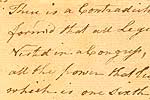 There is a Contradict
formed that all Legi
Vested in a Congress,
all the power that
which is one Sixth